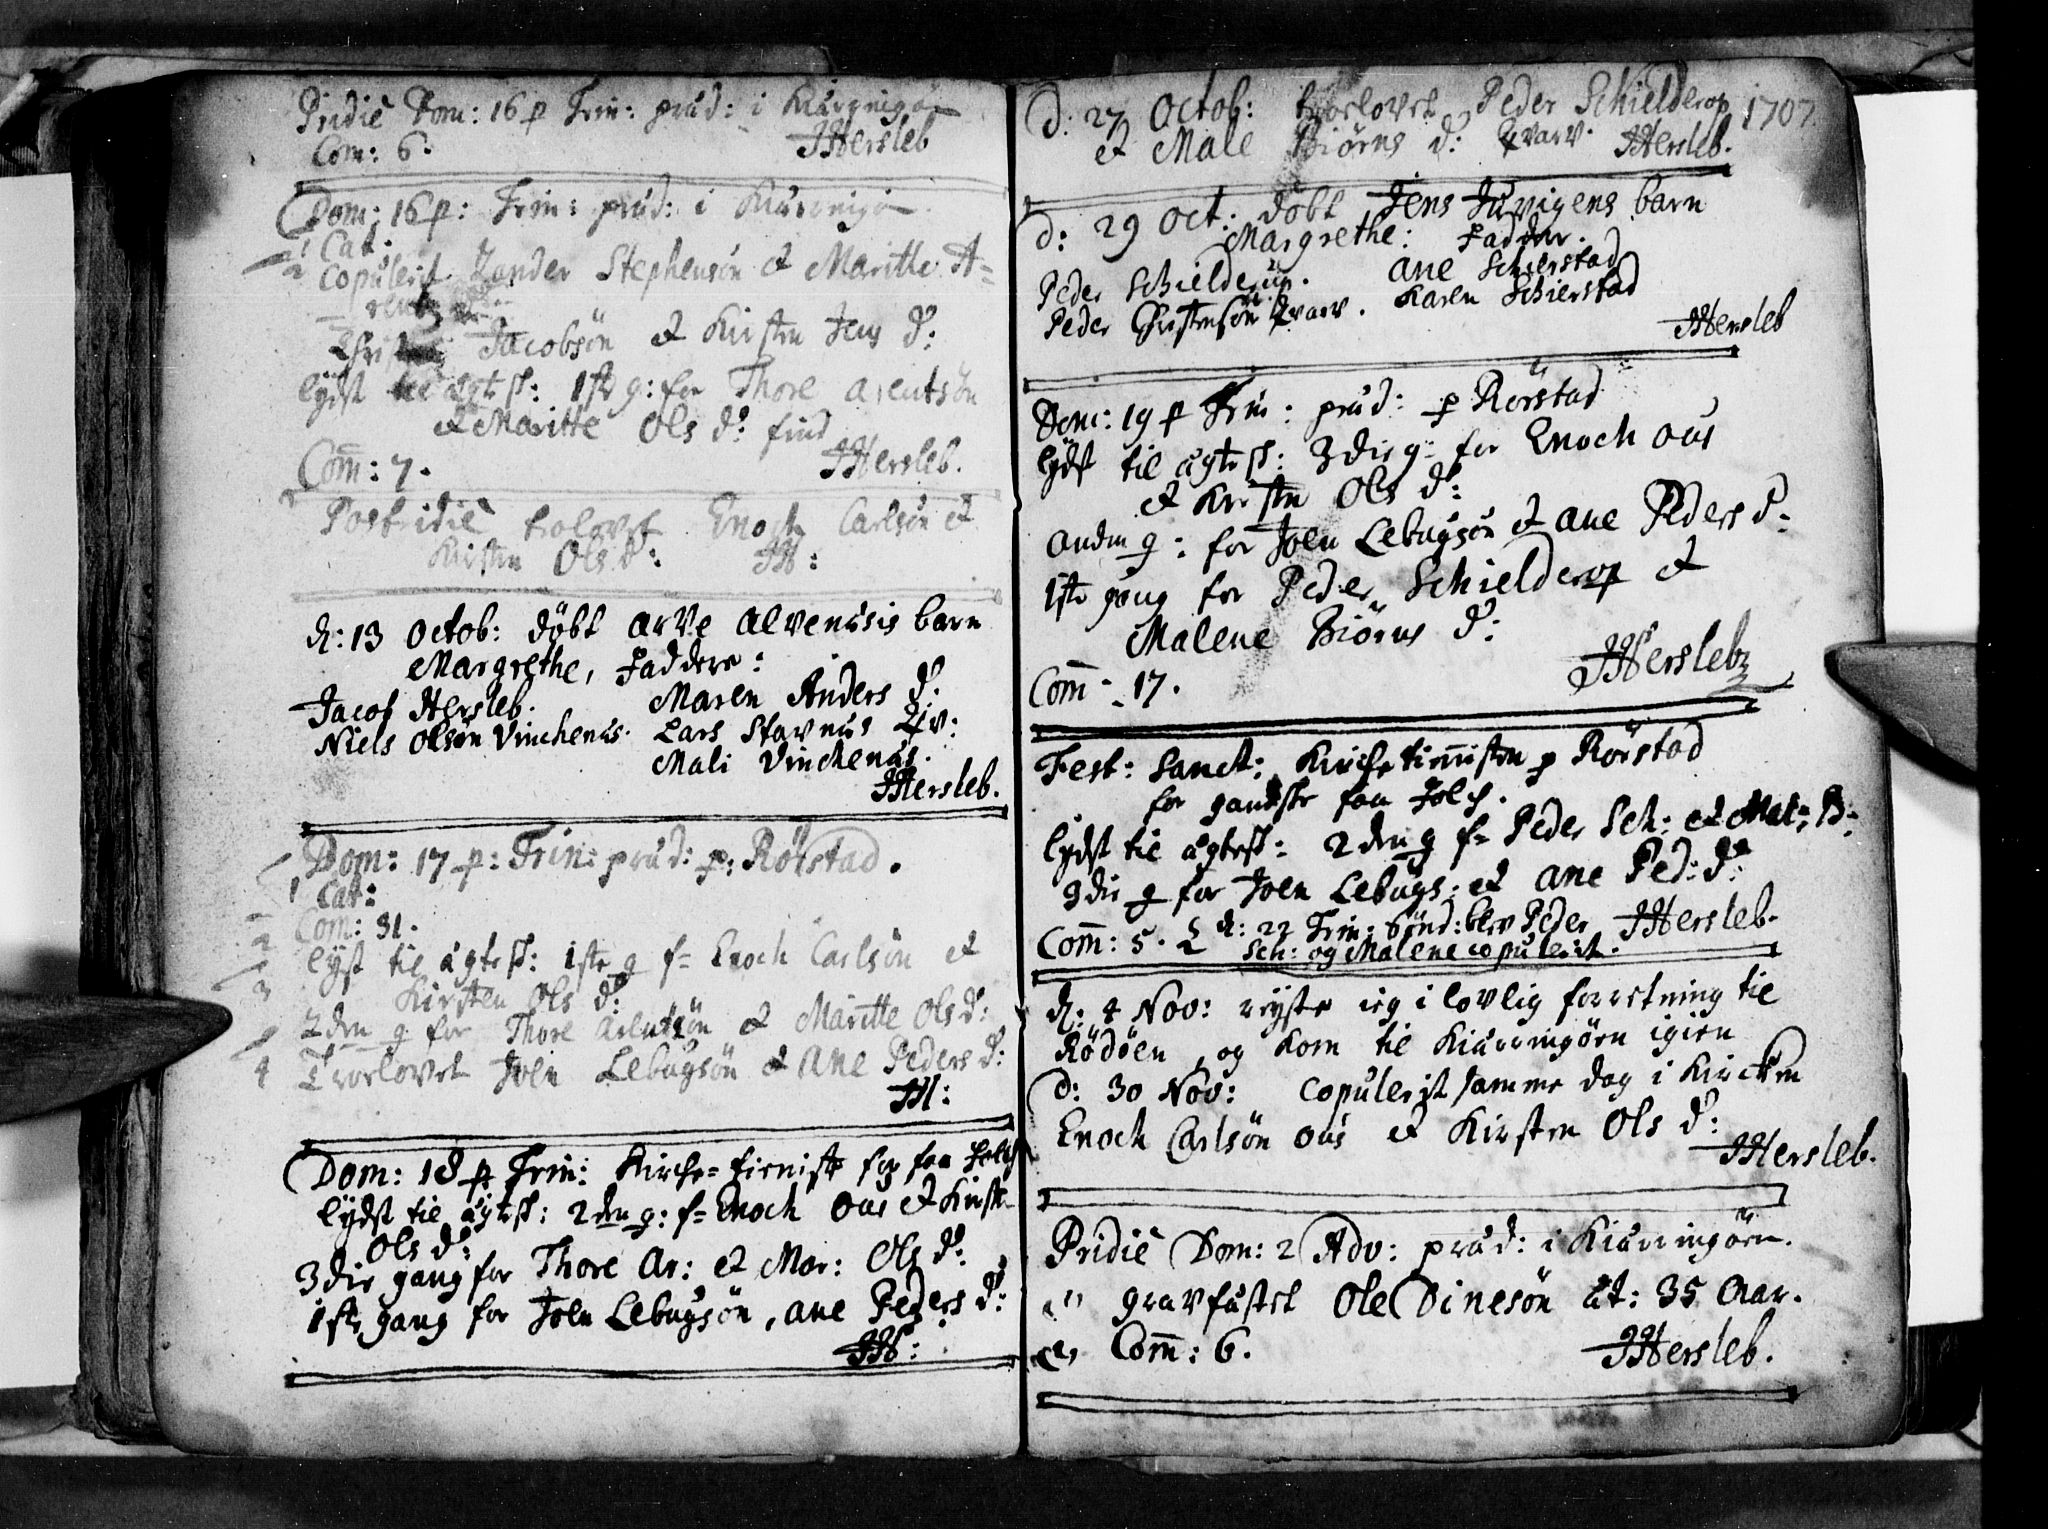 Pridie Dom: 16 p Trin: præd: i Kiæringöen
Com: 6. JHersleb
Dom: 16 p: Trin: præd: i Kiærringö
1 Cat:
2 Copulerit Zander Stephensön et Maritte A=
rentz
Jacobsön et Kirsten Jens D:
lÿdst til ägtesk: 1ste g: for Thore Arentsön
et Maritte Ols D: find
Com̄: 7. JHersleb.
Postridie trolovet Enoch Carlsön et
Kirsten Ols D: JH:
d: 13 Octob: döbt Arve Alvenesis barn
Margrethe, Faddere:
Jacob Hersleb. Maren Anders D:
Niels Olsön Vinckenes. Lars Stavnes
Mali Vinckenæs.
JHersleb.
Dom: 17 p: Trin: præd: p: Rörstad.
1 Cat:
2 Com: 31.
3 lyst til ägtesk: 1ste g f= Enoch Carlsön et
Kirsten Ols D:
2den g for Thore Arentsön et Maritte Ols D:
4 Troelovet Joen Lebugsön et Ane Peders D:
JH:
Dom: 18 p Trin: Kirche=tieniste for faa Folch
lÿdst til ägtesk: 2den g: f= Enoch Ous et Kirst=
Ols D:
3die gang for Thore Ar: et Mar: Ols D:
1ste gang for Joen Lebugsön, Ane Peders D:
JH:
D: 27 Octob: troelovet Peder Schielderop 1707.
et Male Biörns D: Qvarv. JHersleb.
D: 29 Oct: döbt Jens Juvigens barn
Margrethe: Faddur.
Peder Schielderup. Ane Schierstad
Peder Christensön Qvarv. Karen Schierstad
JHersleb
Dom: 19 p Trin: præd: p Rörstad
lÿdst til ägtesk: 3die g: for Enoch Ous
et Kirsten Ols D:
Anden g: for Joen Lebugsön et Ane Peders D:
1ste gang for Peder Schielderop et
Malene Biörns D:
Com̄: 17. JHersleb
Fest: Sanct: Kirche tienisten p Rörstad
for gandske faa Folch.
lÿdst til ägtesk: 2den g f= Peder Sch: et Mal: B:
3die g for Joen Lebugs: et Ane Ped: D:
Com̄: 5. d: 22 Trin: Sönd: blev Peder JHersleb.
Sch: og Malene copulerit.
d: 4 Nov: reÿste ieg i lovlig forretning til
Rödöen, og kom til Kiærringöen igien
D: 30 Nov: Copulerit samme dag i Kircken
Enoch Carlsön Ous et Kirsten Ols D:
JHersleb.
Pridie Dom: 2 Adv: præd: i Kiærringöen.
gravfästet Ole Dinesön ät: 35 Aar.
Com̄: 6. JHersleb.